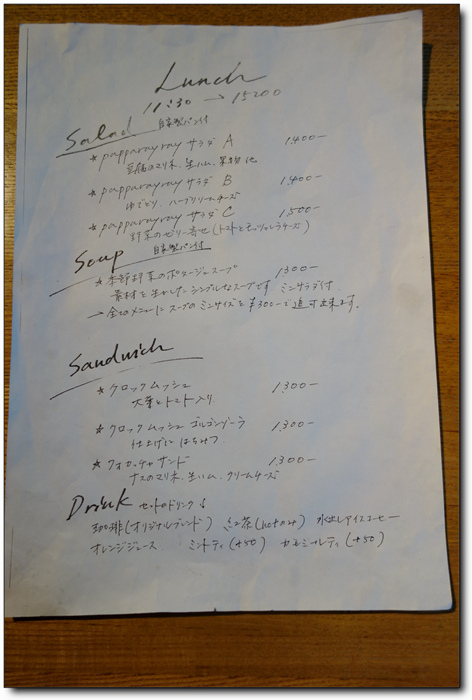 Lunch
11:30 → 15:00
Salad 自家製パン付
★ papparayray サラダ A 1,400-
豆腐のマリネ、生ハム、果物他
★ papparayray サラダ B 1,400-
ゆでどり、ハーブクリームチーズ
★ papparayray サラダ C 1,500-
野菜のゼリー寄せ(トマトとモッツァレラチーズ)
Soup 自家製パン付
★ 季節野菜のポタージュスープ 1,300-
素材を生かしたシンプルなスープです ミニサラダ付
→ 全てのメニューにスープのミニサイズを¥300-で追加出来ます。
Sandwich
★ クロックムッシュ 1,300-
大葉とトマト入り
★ クロックムッシュ ゴルゴンゾーラ 1,300-
仕上げに はちみつ
★ フォカッチャサンド 1,300-
ナスのマリネ、生ハム、クリームチーズ
Drink セットのドリンク ↓
珈琲(オリジナルブレンド) 紅茶(hotのみ) 水出しアイスコーヒー
オレンジジュース ミントティ(+50) カモミールティ(+50)